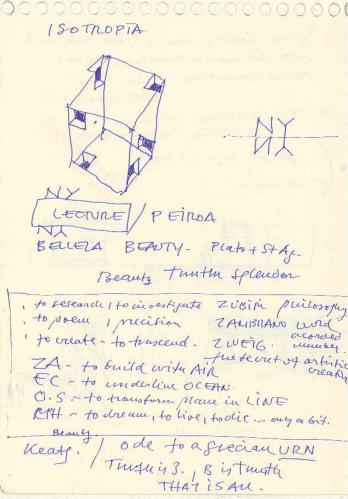 ISOTROPIA
NY
NY
NY
LECTURE / PEIROA
NY
BELLEZA BEAUTY - Plato + St Ag.
Beauty Truth Splendor
. to research, to investigate ZUBIRI philosophy
. to poem, precision ZAMBRANO word
. to create - to trascend. ZWEIG. number
the secret of artistic creation
ZA - to build with AIR
EC - to underline OCEAN.
O.S - to transform plane in LINE
- to dream, to live, to die... only a bit.
Beauty
Keats. / Ode to a grecian URN
Truth is B., B is truth
THAT IS ALL.